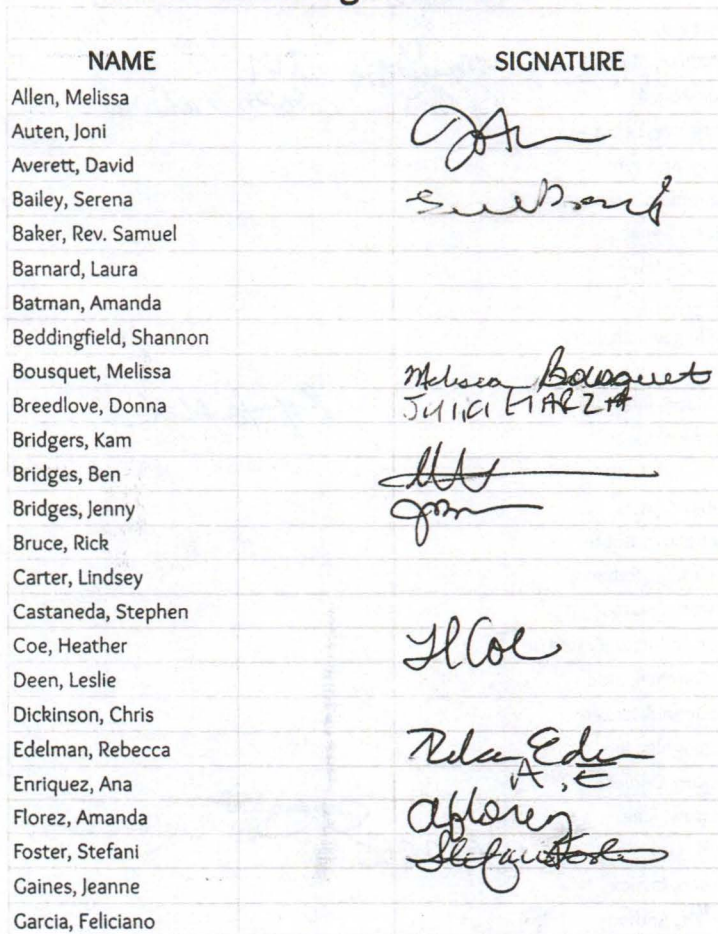 NAME SIGNATURE
Allen, Melissa
Auten, Joni
Averett, David
Bailey, Serena
Baker, Rev. Samuel
Barnard, Laura
Batman, Amanda
Beddingfield, Shannon
Bousquet, Melissa Melissa Bousquet
Breedlove, Donna
Bridgers, Kam
Bridges, Ben
Bridges, Jenny
Bruce, Rick
Carter, Lindsey
Castaneda, Stephen
Coe, Heather HCoe
Deen, Leslie
Dickinson, Chris
Edelman, Rebecca
Enriquez, Ana A.E
Florez, Amanda aflorez
Foster, Stefani Stefani Foster
Gaines, Jeanne
Garcia, Feliciano